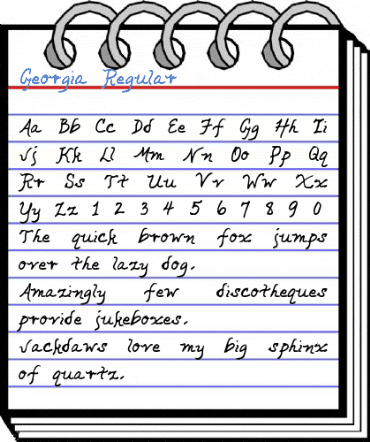 Georgia Regular
Aa Bb Cc Dd Ee Ff Gg Hh Ii
Jj Kk Ll Mm Nn Oo Pp Qq
Rr Ss Tt Uu Vv Ww Xx
Yy Zz 1 2 3 4 5 6 7 8 9 0
The quick brown fox jumps
over the lazy dog.
Amazingly few discotheques
provide jukeboxes.
Jackdaws love my big sphinx
of quartz.